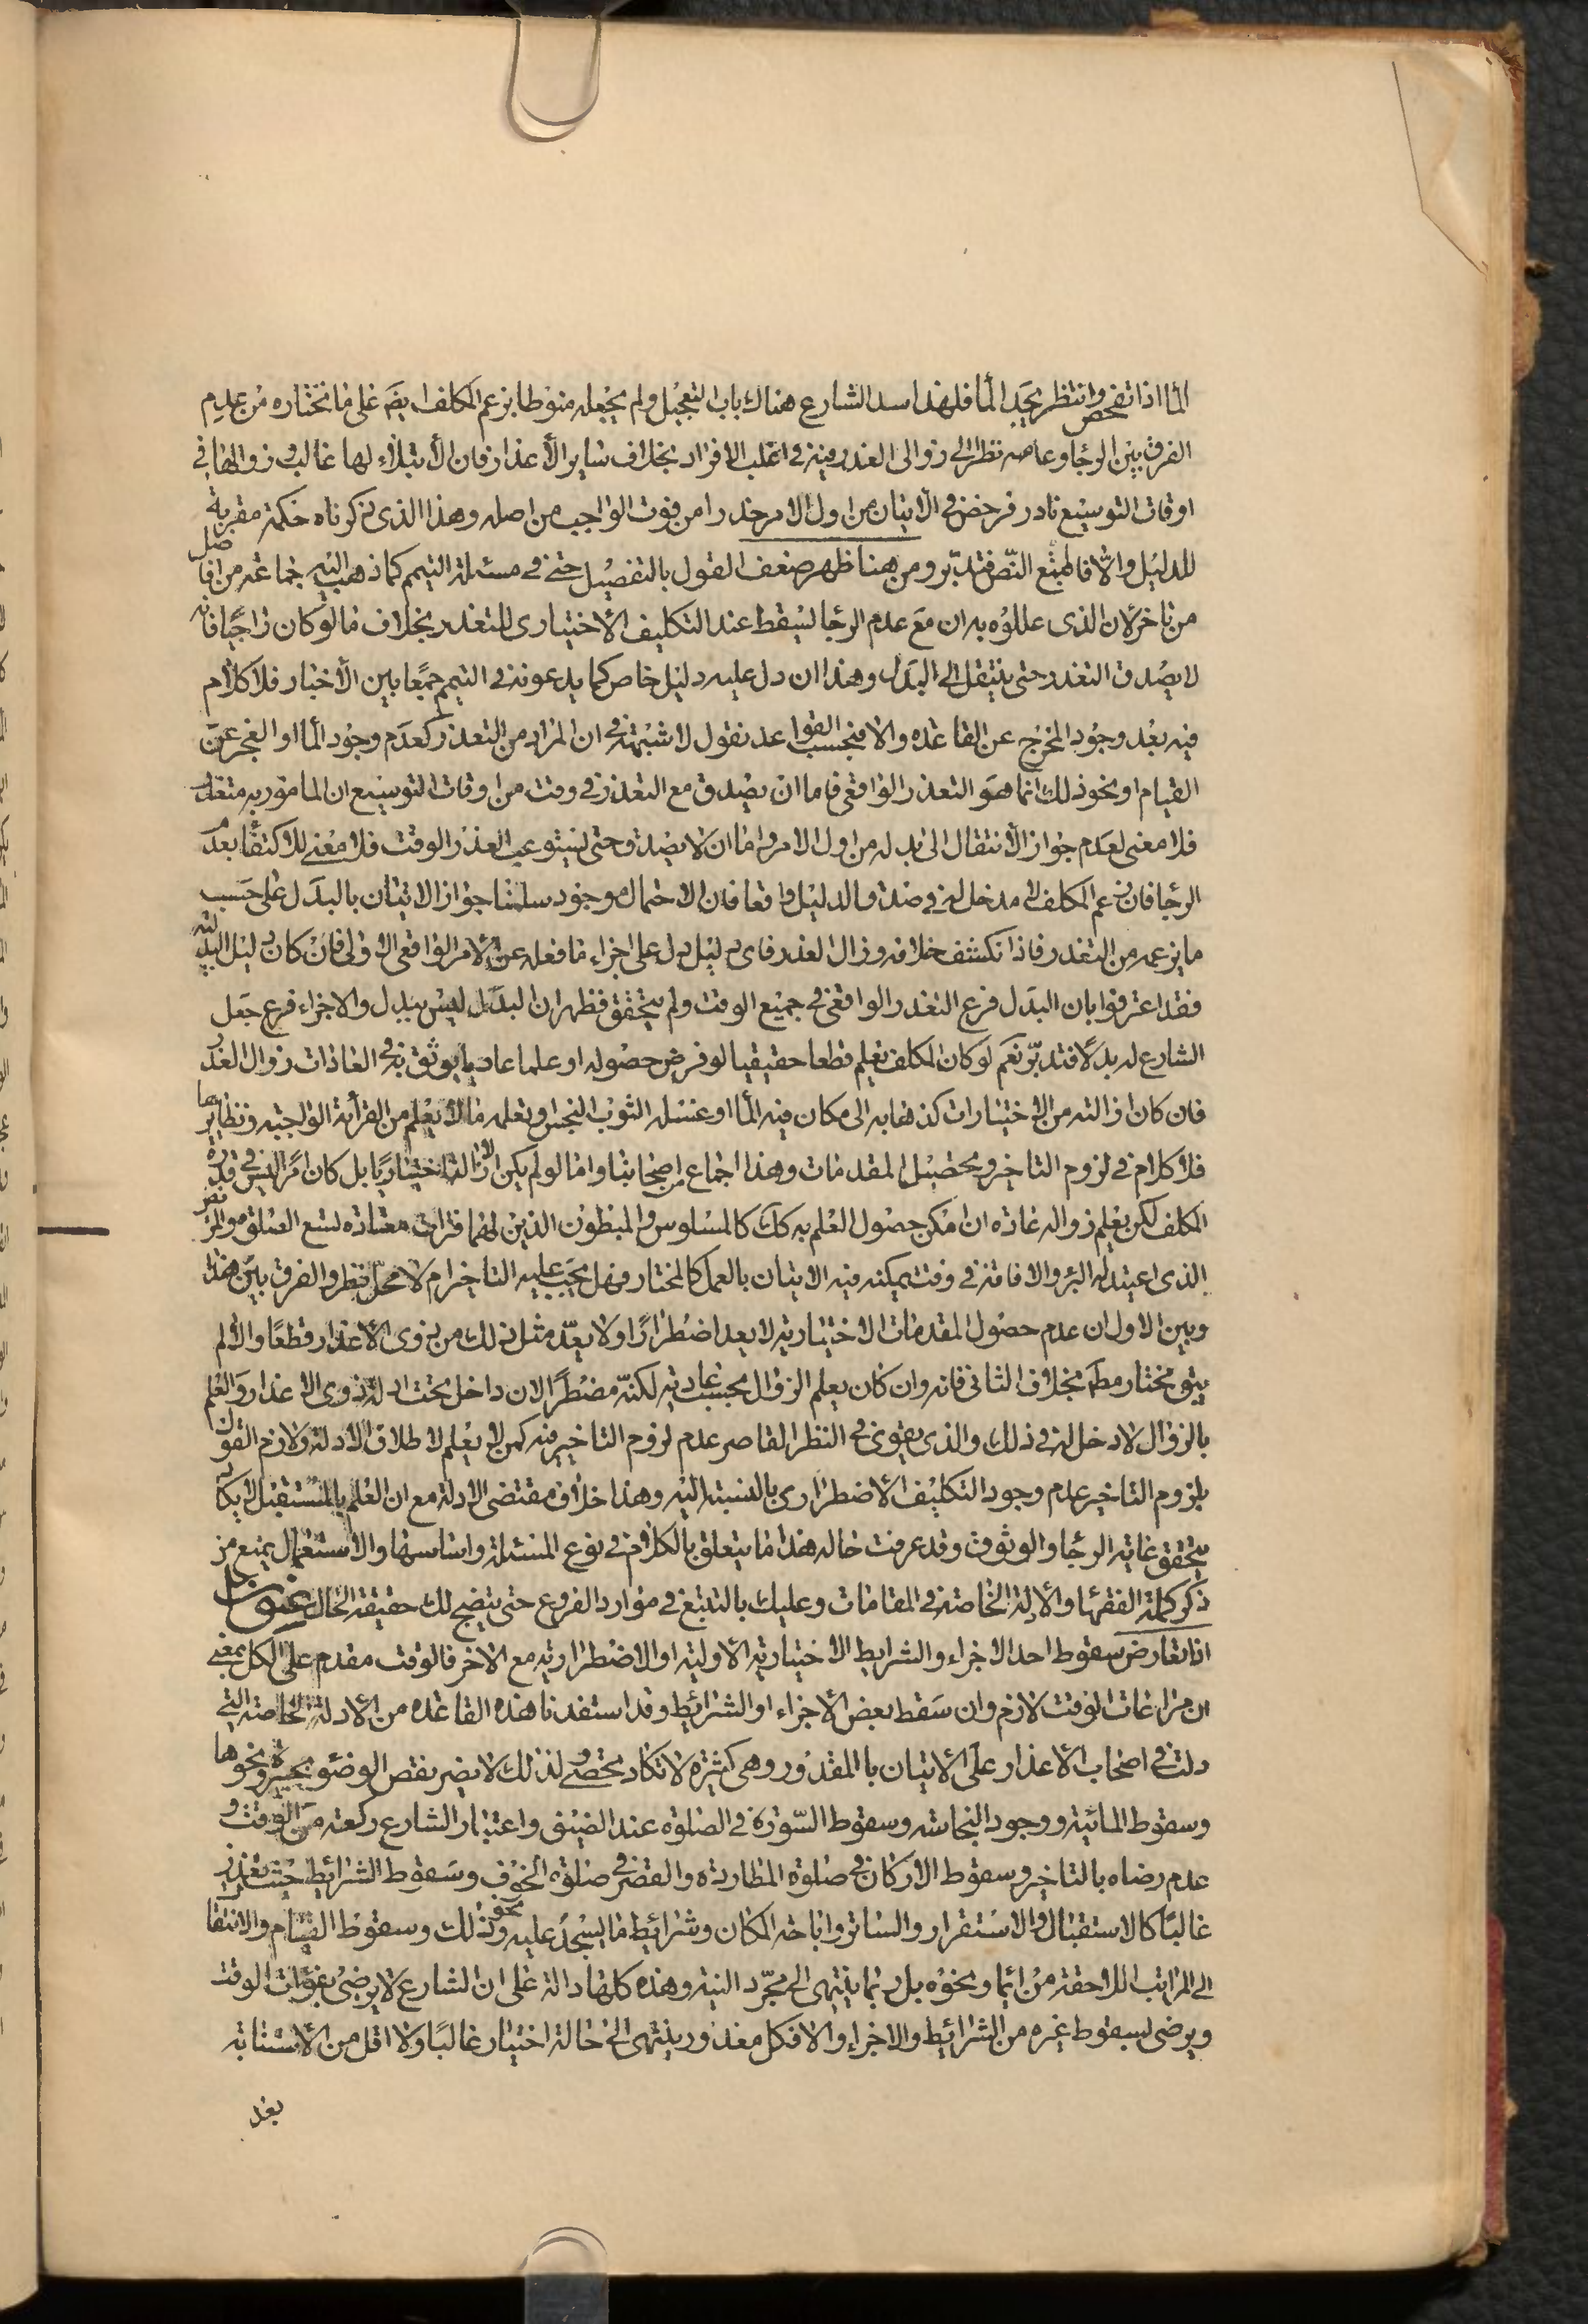 الماء اذا تفحص وانتظر يجد الماء فلهذا سد الشارع هناك باب التعجيل ولم يجعله منوطا بزعم المكلف ايضا على ما نختاره من عدم
الفرق بين الرجا وعدمه نظرا الى زوال العذر فيه في اغلب الافراد بخلاف ساير الأعذار فان الأبتلاء لها غالب وزوالها في
اوقات التوسيع نادر فرخص في الأتيان من اول الامر حذرا من فوت الواجب من اصله وهذا الذي ذكرناه حكمة مقربة
للدليل والا فالمتبع النص فتدبر ومن هنا ظهر ضعف القول بالتفصيل حتى في مسئلة التيمم كما ذهب اليه جماعة من افاضل
من تاخر لان الذي عللوه به ان مع عدم الرجا يسقط عند التكليف الأختياري للتعذر بخلاف ما لو كان راجيا فانه
لا يصدق التعذر حتى ينتقل الى البدل وهذا ان دل عليه دليل خاص كما يدعونه في التيمم جمعا بين الأخبار فلا كلام
فيه بعد وجود المخرج عن القاعده والا فبحسب القواعد نقول لا شبهة في ان المراد من التعذر كعدم وجود الماء او العجز عن
القيام او نحو ذلك انما هو التعذر الواقعي فاما ان يصدق مع التعذر في وقت من اوقات التوسيع ان المامور به متعذر
فلا معنى لعدم جواز الأنتقال الى بدله من اول الامر واما ان لا يصدق حتى يستوعب العذر الوقت فلا معنى للاكتفا بعدم
الرجا فان زعم المكلف لا مدخل له في صدق الدليل واقعا فان الاحتمال موجود سلمنا جواز الاتيان بالبدل على حسب
ما يزعمه من التعذر فاذا انكشف خلافه وزال العذر فاي دليل يدل على اجزاء ما فعله عن الامر الواقعي الاولي فان كان دليل البدلية
فقد اعترفوا بان البدل فرع التعذر الواقعي في جميع الوقت ولم يتحقق فظهر ان البدل ليس ببدل والاجزاء فرع جعل
الشارع له بدلا فتدبر نعم لو كان المكلف يعلم قطعا حقيقيا لو فرض حصوله او علما عاديا يوثق به في العادات زوال العذر
فان كان ازالته من الاختيارات كذهابه الى مكان فيه الماء او غسله الثوب النجس وتعلمه ما لا يعلم من القرأءة الواجبه ونظايرها
فلا كلام في لزوم التاخير وتحصيل المقدمات وهذا اجماع من اصحابنا واما لو لم يكن الازالة اختياريا بل كان امرا ليس في قدرة
المكلف لكن يعلم زواله عادة ان امكن حصول العلم به كك كالمسلوس والمبطون الذين لهما فترات معتادة تسع الصلوة والمريض
الذي اعتيد له البرء والافاقة في وقت يمكنه فيه الاتيان بالعمل كالمختار فهل يجب عليه التاخير ام لا محل نظر والفرق بين هذا
وبين الاول ان عدم حصول المقدمات الاختياريه لا يعد اضطرارا ولا يعد مثل ذلك من ذوي الأعذار قطعا والا لم
يبق مختار مطلقا بخلاف الثاني فانه وان كان يعلم الزوال بحسب عادته لكنه مضطر الان داخل تحت ادلة ذوي الاعذار والعلم
بالزوال لا دخل له في ذلك والذي يقوى في النظر القاصر عدم لزوم التاخير فيه كمن لا يعلم لاطلاق الأدلة ولازم القول
بلزوم التاخير عدم وجود التكليف الأضطراري بالنسبة اليه وهذا خلاف مقتضى الادلة مع ان العلم بالمستقبل لا يكاد
يتحقق غايته الرجا والوثوق وقد عرفت حاله هذا ما يتعلق بالكلام في نوع المسئلة واساسها والأستعجال يمنع من
ذكر كلمة الفقها والأدلة الخاصة في المقامات وعليك بالتتبع في موارد الفروع حتى يتضح لك حقيقة الحال عنوان
اذا تعارض سقوط احد الاجزاء والشرايط الاختيارية الأولية او الاضطرارية مع الاخر فالوقت مقدم على الكل بمعنى
ان مراعات الوقت لازم وان سقط بعض الأجزاء او الشرائط وقد استفدنا هذه القاعده من الأدلة الخاصة التي
دلت في اصحاب الأعذار على الأتيان بالمقدور وهي كثيرة لا تكاد تحصى ولذلك لا يضر نقص الوضوء بجبيرة ونحوها
وسقوط المائية ووجود النجاسة وسقوط السورة في الصلوة عند الضيق واعتبار الشارع ركعة من الوقت و
عدم رضاه بالتاخير وسقوط الاركان في صلوة المطاردة والقصر في صلوة الخوف وسقوط الشرائط حيث تعذر
غالبا كالاستقبال والاستقرار والساتر واباحة المكان وشرائط ما يسجد عليه ونحو ذلك وسقوط القيام والانتقال
الى المراتب اللاحقة من ايماء ونحوه بل ربما ينتهي الى مجرد النية وهذه كلها دالة على ان الشارع لا يرضى بفوات الوقت
ويرضى بسقوط غيره من الشرائط والاجزاء والا فكل معذور ينتهي الى حالة اختيار غالبا ولا اقل من الأستنابة
بعد